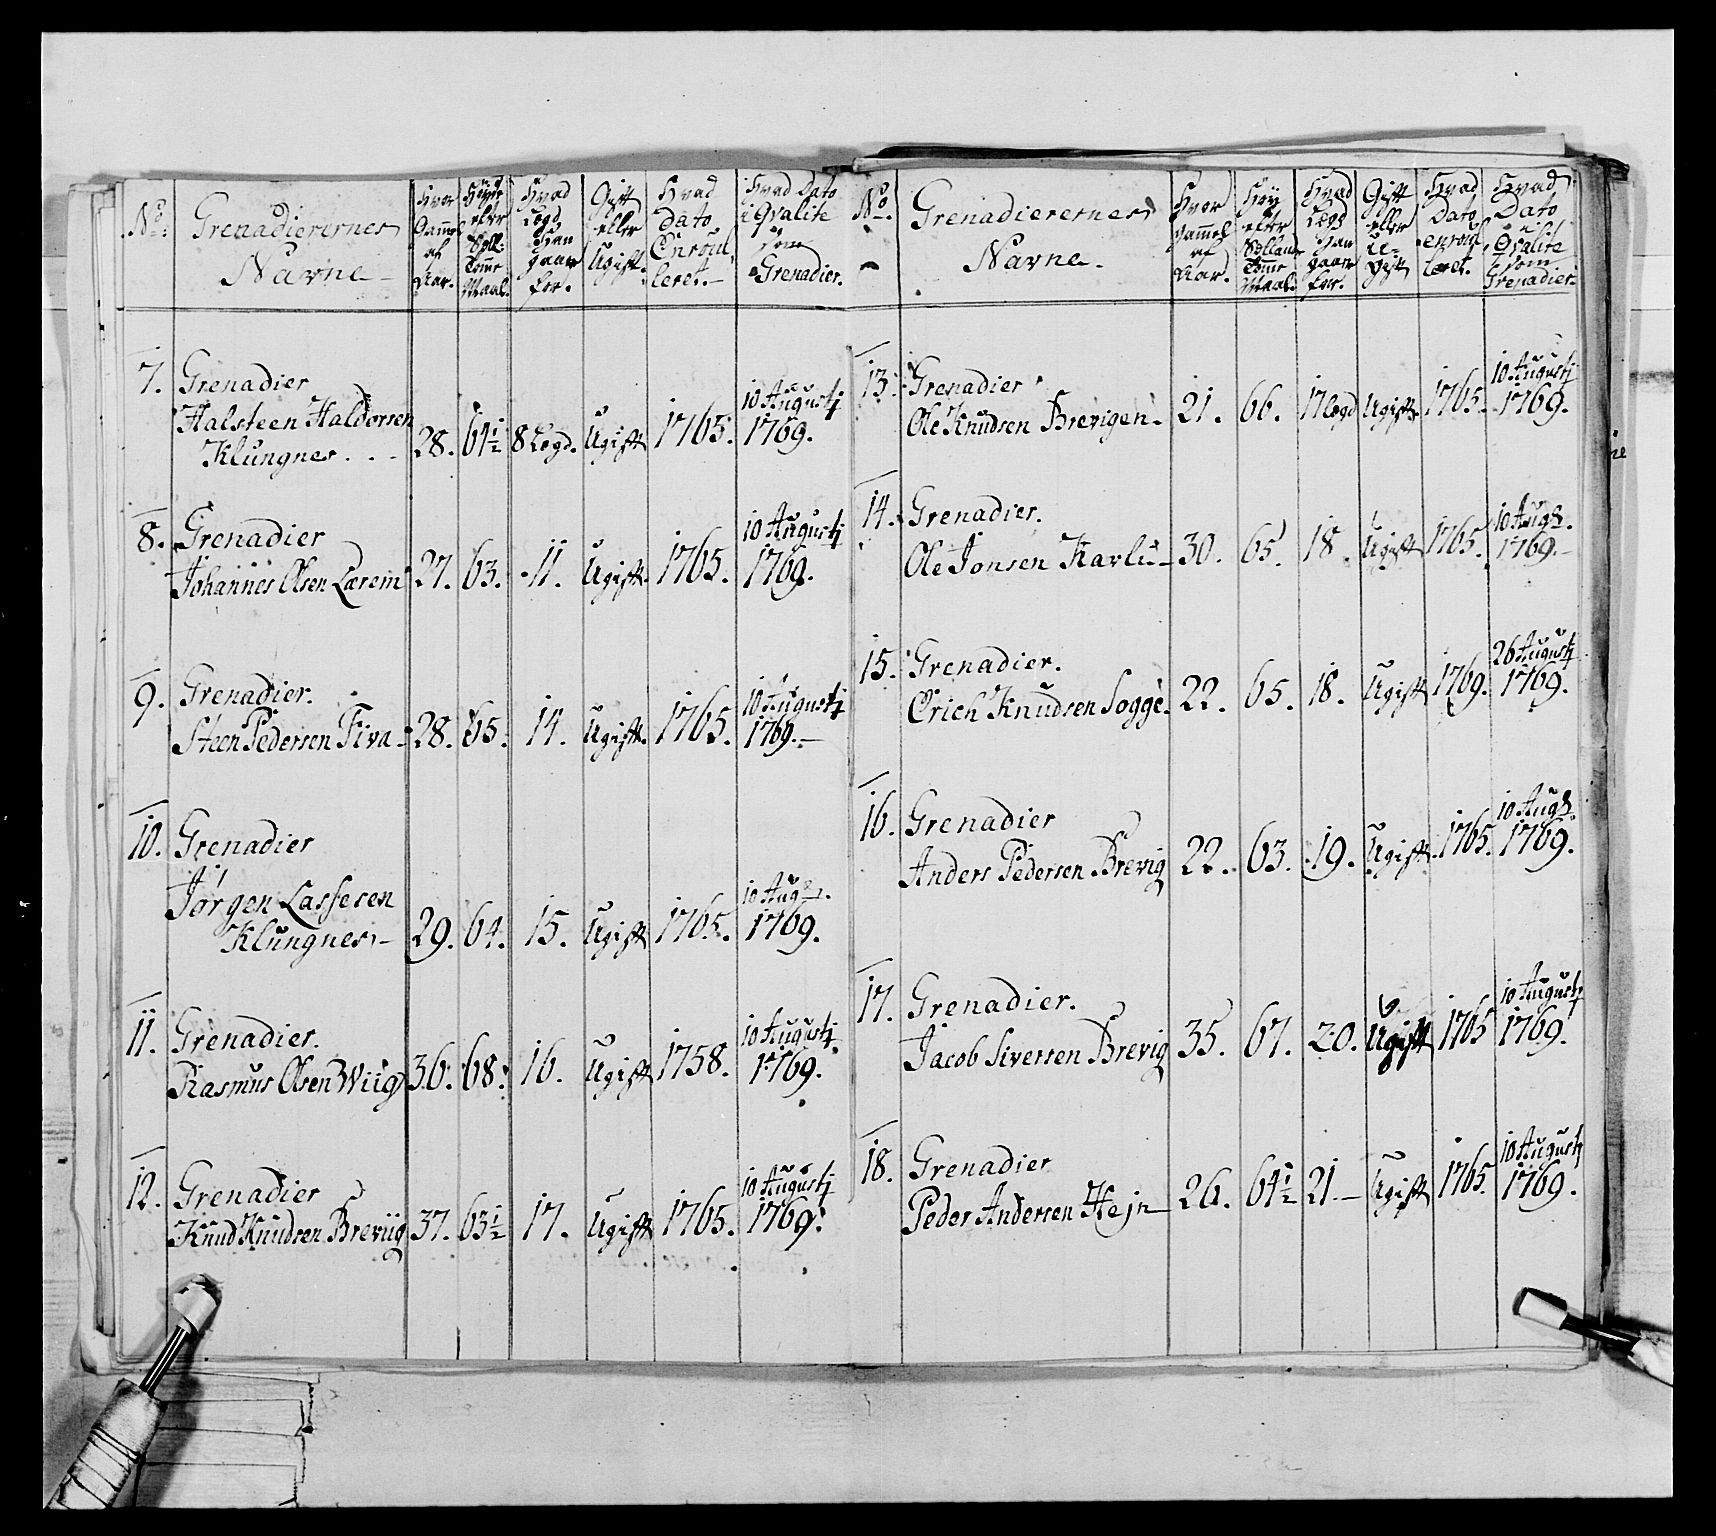 No.
Grenadierernes
Navne
Hvor
Gammel
af
Aar.
Höyde
efter
Tomme
Maal.
Hvad
Lægd
Han
gaar
for.
Gift
eller
Ugift.
Hvad
Dato
Enroul
leret.
Hvad Dato
i Qvalite
som
Grenadier.
7. Grenadier
Halsteen Haldorsen
Klungnes . . - 28. 64½ 8 Lægd. Ugift 1765. 10 Augustj 1769.
8. Grenadier
Johannes Olsen Lærem 27. 63. 11. Ugift. 1765. 10 Augustj 1769.
9. Grenadier.
Steen Pedersen Fiva - 28. 65. 14. Ugift. 1765. 10 Augustj 1769.-
10. Grenadier
Jørgen Lassesen
Klungnes - 29. 64. 15. Ugift 1765. 10 Aug. 1769.
11. Grenadier.
Rasmus Olsen Wiig 36. 68. 16. Ugift 1758. 10 Augustj 1769.
12. Grenadier
Knud Knudsen Breviig 37. 63½ 17. Ugift 1765. 10 Augustj 1769.
No.
Grenadierernes
Navne.
Hvor
Gammel
af
Aar.
Höy
efter
Tomme
Maal.
Hvad
Lægd
Han
gaar
for.
Gift
eller
U-
gift
Hvad
Dato
enroul
leret.
Hvad
Dato
i
Qvalite
som
Grenadier.
13. Grenadier
Ole Knudsen Brevigen. 21. 66. 17 Lægd Ugift. 1765. 10 Augustj 1769.
14. Grenadier.
Ole Jonsen Karlii - 30. 65. 18. Ugift 1765. 10 Aug. 1769.-
15. Grenadier.
Erich Knudsen Sogge. 22. 65. 18. Ugift 1769. 26 Augustj 1769.
16. Grenadier
Anders Pedersen Brevig 22. 63. 19. Ugift. 1765. 10 Aug. 1769.
17. Grenadier.
Jacob Siversen Brevig 35. 67. 20. Ugift 1765 10 Augustj 1769.
18. Grenadier
Peder Andersen Hejn 26. 64½ 21 - Ugift 1765. 10 Augustj 1769.